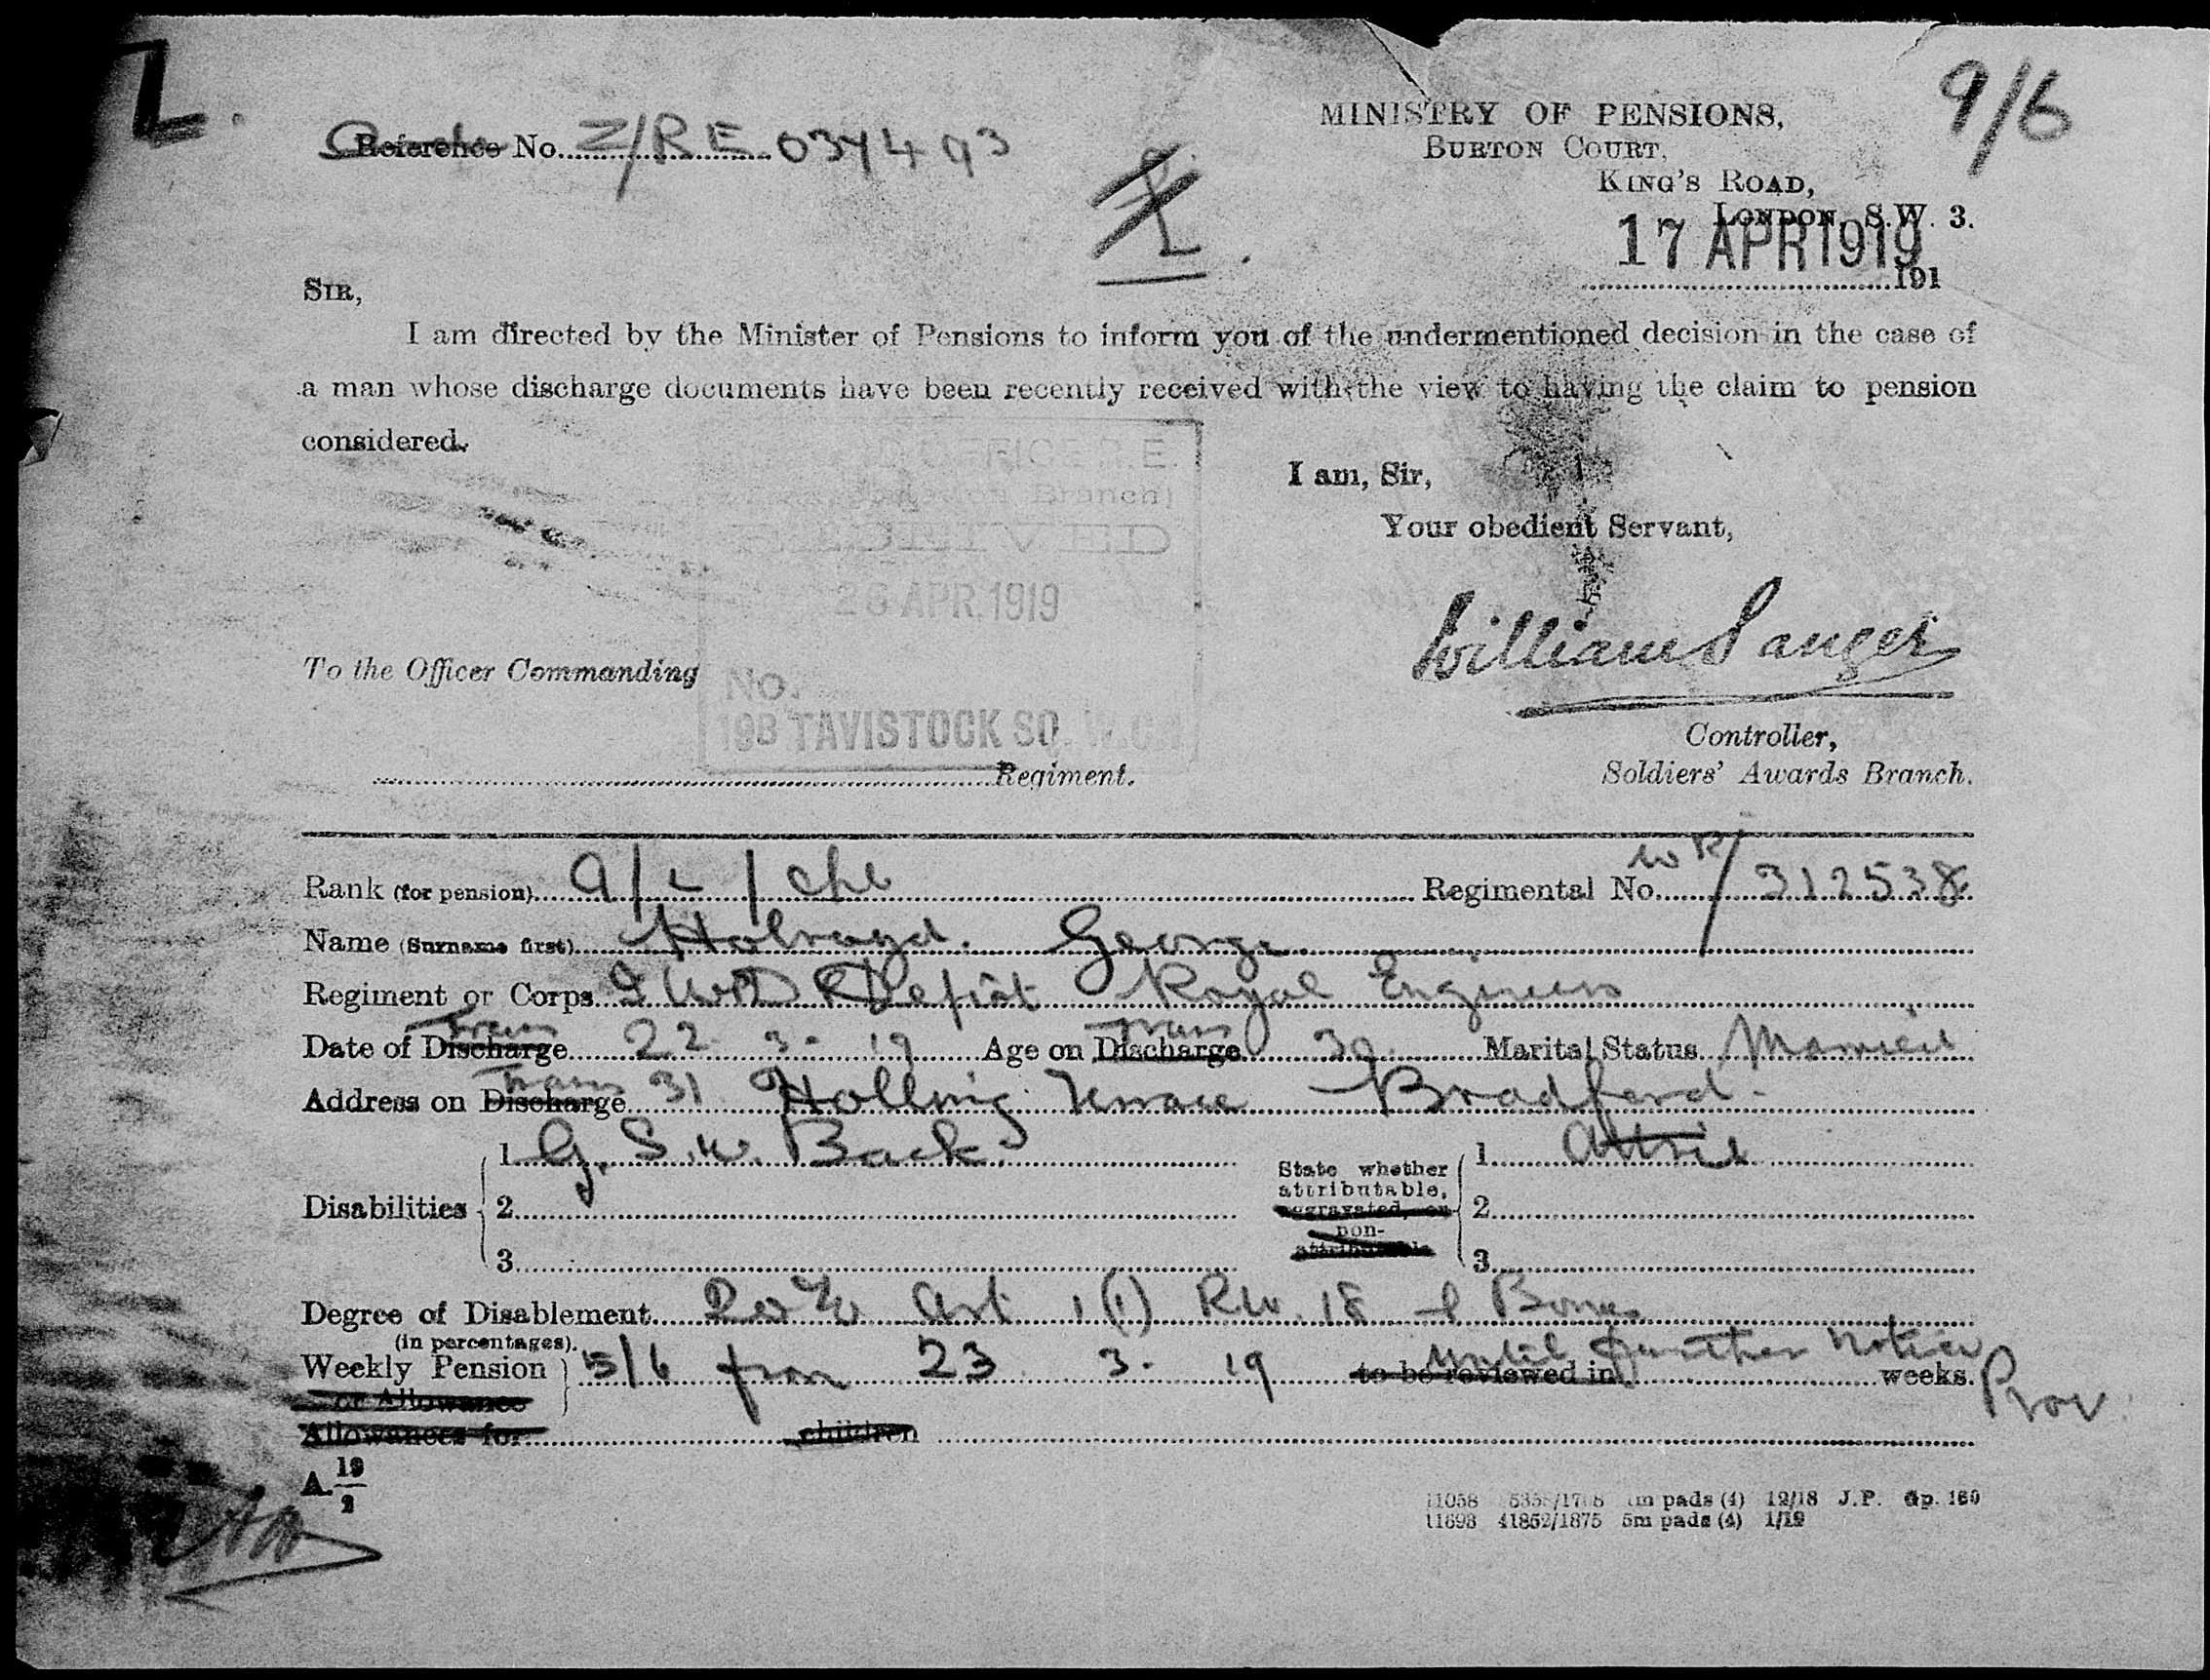 L.
9/6
MINISTRY OF PENSIONS,
Reference No. Z/RE 034493
BURTON COURT,
KING'S ROAD,
LONDON, S.W. 3.
17 APR 1919
191
SIR,
I am directed by the Minister of Pensions to inform you of the undermentioned decision in the case of
a man whose discharge documents have been recently received with the view to having the claim to pension
considered.
I am, Sir,
Your obedient Servant,
Branch)
RECEIVED
APR. 1919
William Sanger
To the Officer Commanding
No.
TAVISTOCK SQ. W.C.
Controller,
Regiment.
Soldiers' Awards Branch.
Rank (for pension) A/L/Cpl Regimental No. WR/312538
Name (Surname first) Holroyd. George
Regiment or Corps IWD RE Depot Royal Engineers
Date of Discharge Trans 22. 3. 19 Age on Discharge Trans 39 Marital Status Married
Address on Discharge Trans 31 Holling Terrace Bradford.
Disabilities
1 G. S. W. Back.
2
3
State whether
attributable,
aggravated, or
non-
attributable
1 Attrib
2
3
Degree of Disablement 20% Art 1(1) RW. 18 & Bonus
(in percentages).
Weekly Pension 5/6 from 23. 3. 19 to be reviewed in until further notice weeks. Prov
or Allowance
Allowances for children
A. 19/2
11058 m pads (4) 12/18 J.P. Gp. 160
11698 41852/1875 5m pads (4) 1/19